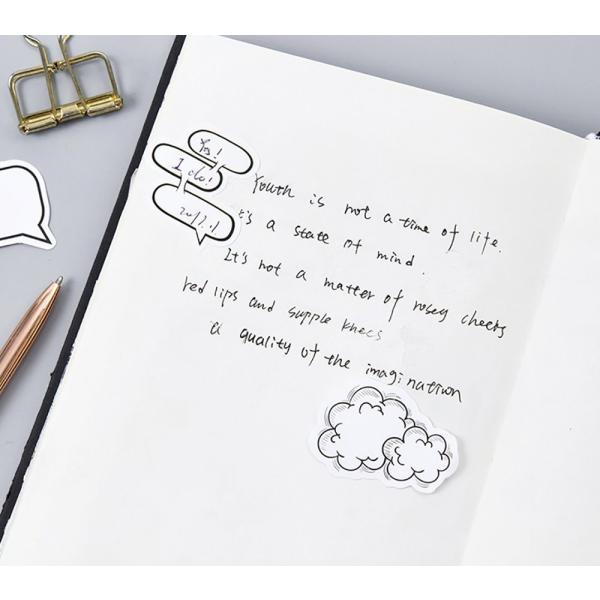 Yes!
I do!
Youth is not a time of life.
t's a state of mind.
It's not a matter of rosey cheeks
red lips and supple knees
a quality of the imagination